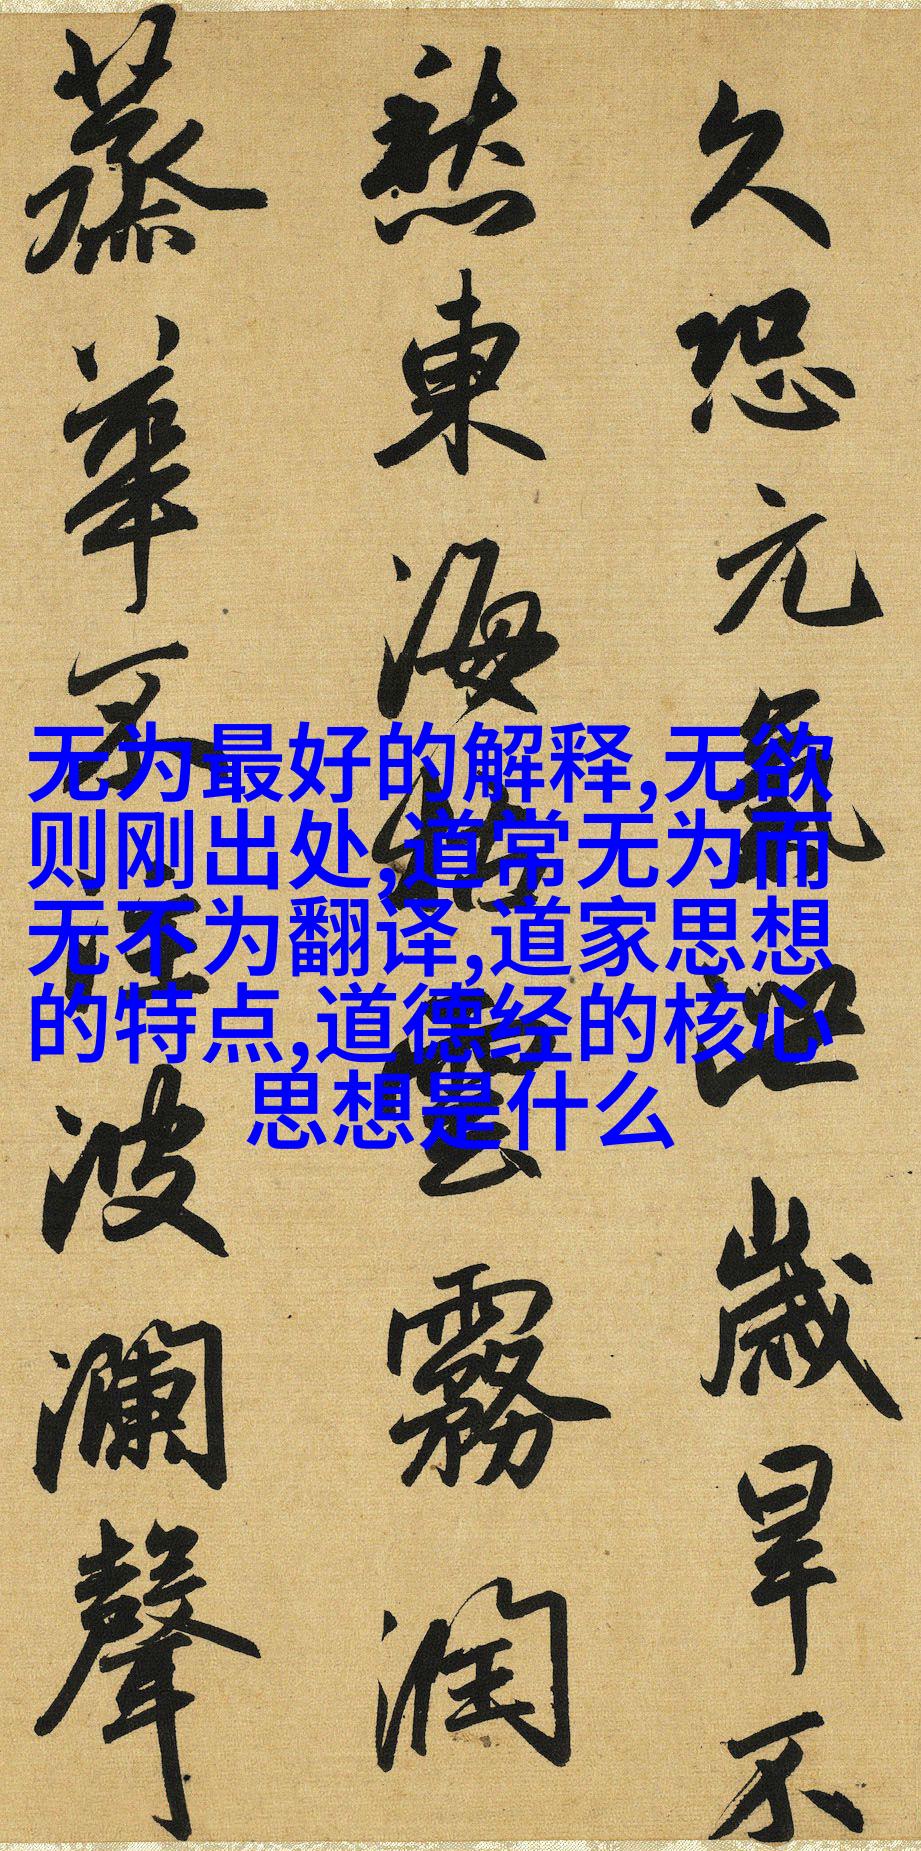 久恐元氣泄歲旱不
愁東海枯雲霧潤
蒸華不注波瀾聲
无为最好的解释,无欲
则刚出处,道常无为而
无不为翻译,道家思想
的特点,道德经的核心
思想是什么